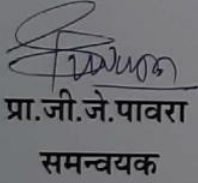 प्रा.जी.जे.पावरा
समन्वयक